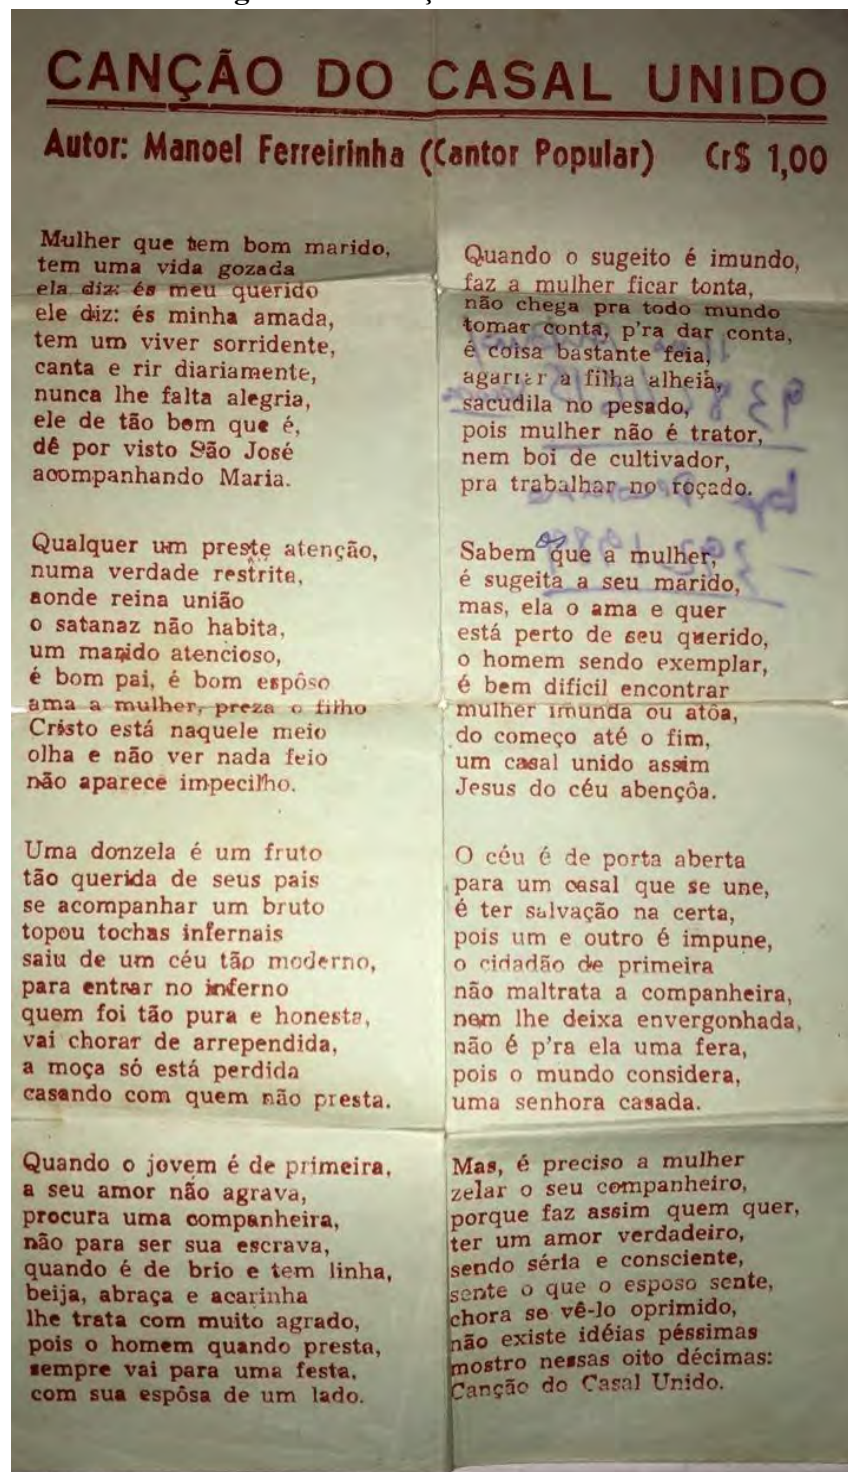 CANÇÃO DO CASAL UNIDO
Autor: Manoel Ferreirinha (Cantor Popular) Cr$ 1,00
Mulher que tem bom marido,
tem uma vida gozada
ela diz: és meu querido
ele diz: és minha amada,
tem um viver sorridente,
canta e rir diariamente,
nunca lhe falta alegria,
ele de tão bem que é,
dê por visto São José
acompanhando Maria.
Qualquer um preste atenção,
numa verdade restrita,
aonde reina união
o satanaz não habita,
um marido atencioso,
é bom pai, é bom espôso
ama a mulher, preza o filho
Cristo está naquele meio
olha e não ver nada feio
não aparece impecilho.
Uma donzela é um fruto
tão querida de seus pais
se acompanhar um bruto
topou tochas infernais
saiu de um céu tão moderno,
para entrar no inferno
quem foi tão pura e honesta,
vai chorar de arrependida,
a moça só está perdida
casando com quem não presta.
Quando o jovem é de primeira,
a seu amor não agrava,
procura uma companheira,
não para ser sua escrava,
quando é de brio e tem linha,
beija, abraça e acarinha
lhe trata com muito agrado,
pois o homem quando presta,
sempre vai para uma festa,
com sua espôsa de um lado.
Quando o sugeito é imundo,
faz a mulher ficar tonta,
não chega pra todo mundo
tomar conta, p'ra dar conta,
é coisa bastante feia,
agarrar a filha alheia,
sacudila no pesado,
pois mulher não é trator,
nem boi de cultivador,
pra trabalhar no roçado.
Sabemos que a mulher,
é sugeita a seu marido,
mas, ela o ama e quer
está perto de seu querido,
o homem sendo exemplar,
é bem dificil encontrar
mulher imunda ou atôa,
do começo até o fim,
um casal unido assim
Jesus do céu abençôa.
O céu é de porta aberta
para um casal que se une,
é ter salvação na certa,
pois um e outro é impune,
o cidadão de primeira
não maltrata a companheira,
nem lhe deixa envergonhada,
não é p'ra ela uma fera,
pois o mundo considera,
uma senhora casada.
Mas, é preciso a mulher
zelar o seu companheiro,
porque faz assim quem quer,
ter um amor verdadeiro,
sendo séria e consciente,
sente o que o esposo sente,
chora se vê-lo oprimido,
não existe idéias péssimas
mostro nessas oito décimas:
Canção do Casal Unido.